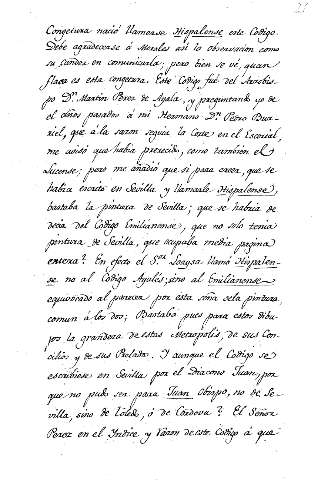 Congetura nació llamarse Hispalense este Codigo.
Debe agradecerse á Morales así la observacion como
su candor en comunicarla; pero bien se vé, quan
flaca es esta congetura. Este Codigo fué del Arzobis-
po Dn. Martin Perez de Ayala, y preguntando yo de
el años pasados á mi Hermano Dn. Pedro Bur-
riel, que á la sazon seguia la Corte en el Escorial,
me avisó que habia perecido, como tambien el
Lucense; pero me añadió que si para creer, que se
habia escrito en Sevilla y llamarle Hispalense,
bastaba la pintura de Sevilla; que se habria de
decir del Codigo Emilianense, que no solo tenia
pintura de Sevilla, que ocupaba media pagina
entera? En efecto el Sor. Loaysa llamó Hispalen-
se, no al Codigo Ayales; sino al Emilianense
equivocado al parecer por esta sola pintura
comun á los dos; Bastaba pues para estos dibu-
jos la grandeza de estas Metropolis, de sus Con-
cilios y de sus Prelados. Y aunque el Codigo se
escribiese en Sevilla por el Diacono Juan, por
que no pudo ser para Juan Obispo, no de Se-
villa, sino de Toledo, ó de Cordova? El Señor
Perez en el Yndice y Varon de este Codigo á que-